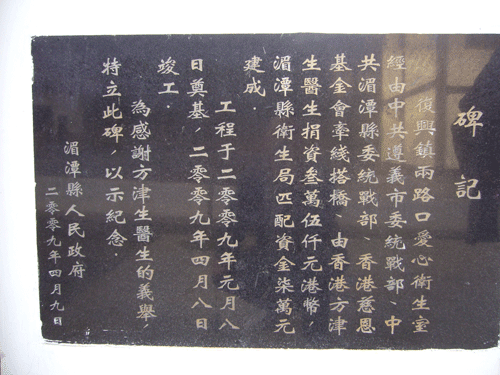 碑記
復興鎮兩路口愛心衛生室
經由中共遵義市委統戰部、中
共湄潭縣委統戰部、香港慈恩
基金會牽綫搭橋、由香港方津
生醫生捐資叁萬伍仟元港幣，
湄潭縣衛生局匹配資金柒萬元
建成．
工程于二零零九年元月八
日奠基，二零零九年四月八日
竣工．
為感謝方津生醫生的義舉，
特立此碑，以示紀念．
湄潭縣人民政府
二零零九年四月九日